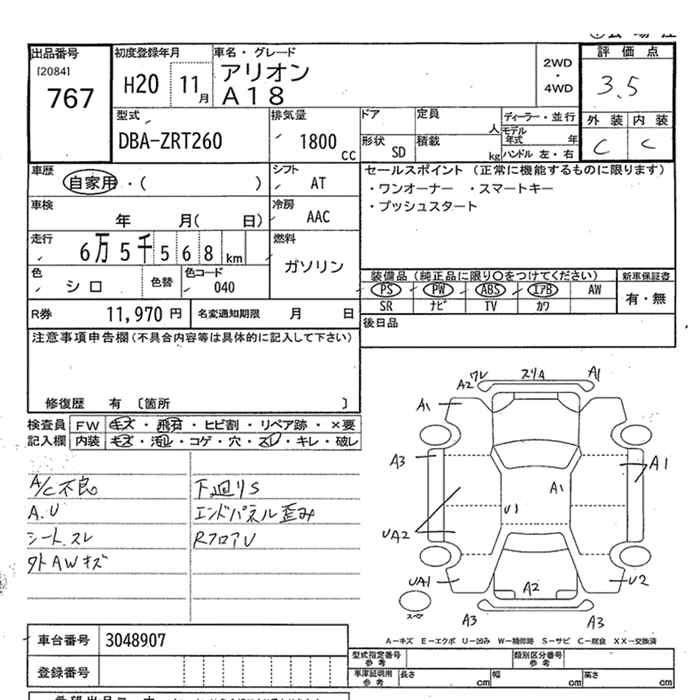 出品番号
[2084]
767
初度登録年月
H20 11月
車名・グレード
アリオン
A18
2WD
・
4WD
評価点
3.5
外装 内装
C C
型式
DBA-ZRT260
排気量
1800 cc
ドア
定員
人
ディーラー・並行
モデル年式 年
ハンドル 左・右
形状
SD
積載
kg
車歴
自家用・( )
シフト
AT
車検
年 月( 日)
冷房
AAC
走行
6万5千568km
燃料
ガソリン
色
シロ
色替
色コード
040
セールスポイント (正常に機能するものに限ります)
・ワンオーナー ・スマートキー
・プッシュスタート
装備品 (純正品に限り○をつけてください)
PS PW ABS エアB AW
SR ナビ TV カワ
新車保証書
有・無
R券 11,970円
名変通知期限 月 日
後日品
注意事項申告欄(不具合内容等は具体的に記入して下さい)
修復歴 有 〔箇所 〕
検査員
記入欄
FW キズ・飛石・ヒビ割・リペア跡・×要
内装 キズ・汚れ・コゲ・穴・スレ・キレ・破レ
A/C不良
A.U
シートスレ
外AWキズ
下廻りS
エンドパネル歪み
RフロアU
ワレ
A2
スリA
A1
A1
A3
A1
A1
U1
UA2
UA1
A2
U2
スペア
A3
A3
A-キズ E-エクボ U-凹み W-補修跡 S-サビ C-腐食 XX-交換済
車台番号 3048907
登録番号
型式指定番号
参考
類別区分番号
参考
車庫証明用
参考
長さ cm
幅 cm
高さ cm